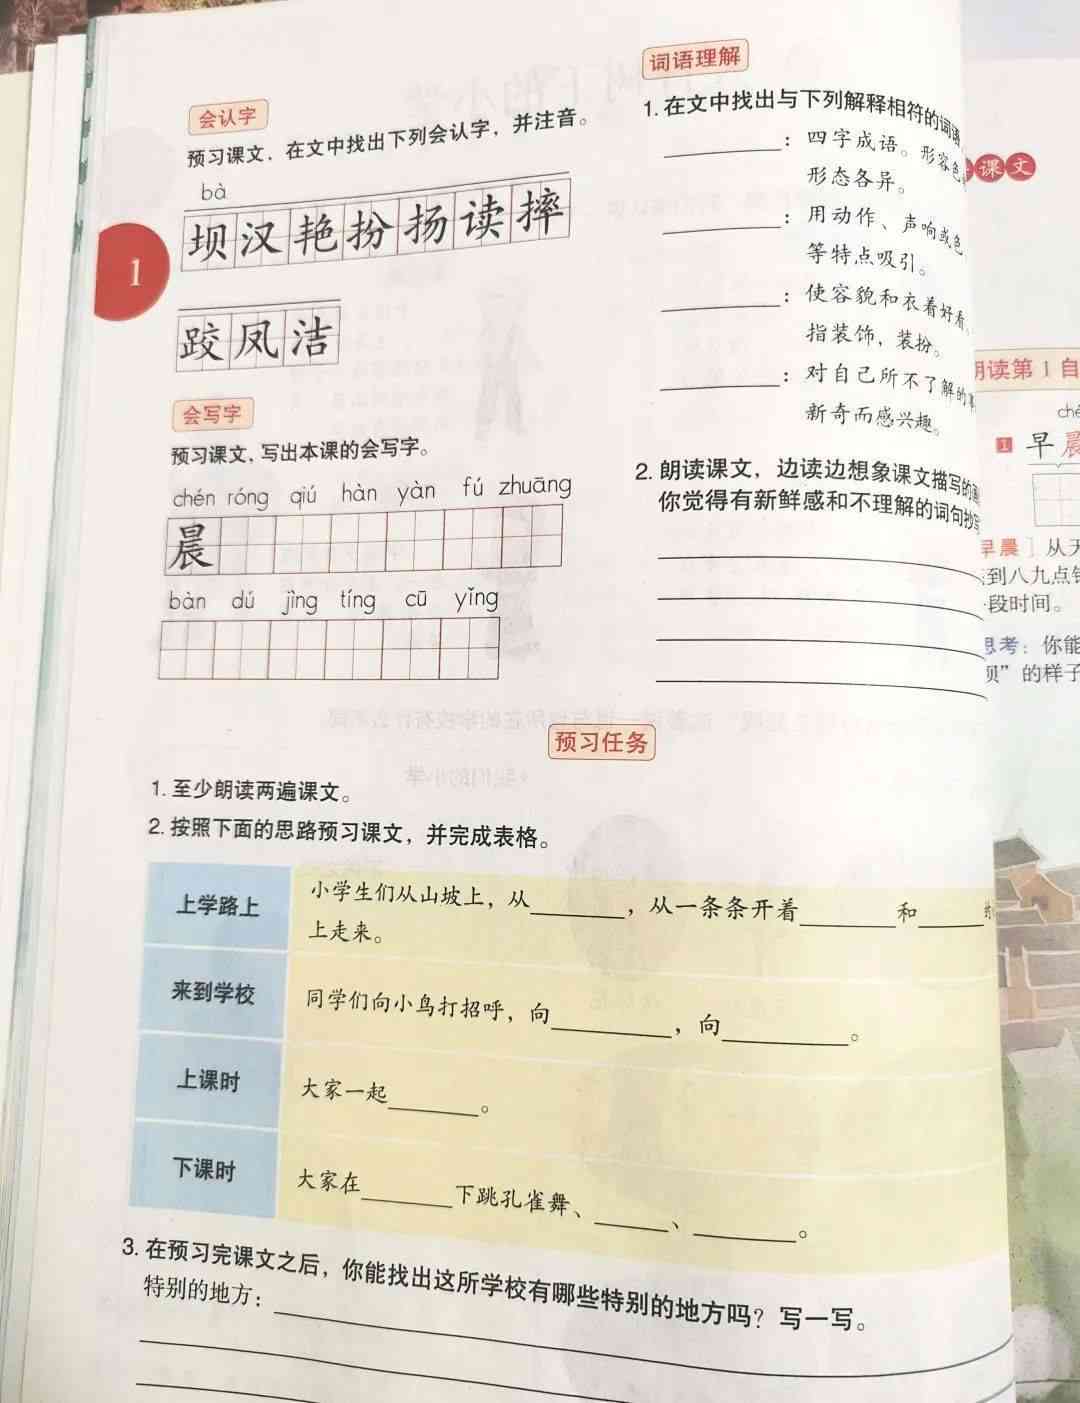 会认字
预习课文，在文中找出下列会认字，并注音。
bà
坝汉艳扮扬读摔
跤凤洁
1
会写字
预习课文，写出本课的会写字。
chén róng qiú hàn yàn fú zhuāng
晨
bàn dú jìng tíng cū yǐng
词语理解
1.在文中找出与下列解释相符的词语
：四字成语。形容色
形态各异。
：用动作、声响或色
等特点吸引。
：使容貌和衣着好看。
指装饰，装扮。
：对自己所不了解的事
新奇而感兴趣。
2.朗读课文，边读边想象课文描写的
你觉得有新鲜感和不理解的词句抄写
预习任务
1.至少朗读两遍课文。
2.按照下面的思路预习课文，并完成表格。
上学路上
小学生们从山坡上，从________，从一条条开着________和______
上走来。
来到学校
同学们向小鸟打招呼，向__________，向__________。
上课时
大家一起________。
下课时
大家在________下跳孔雀舞、______、________。
3.在预习完课文之后，你能找出这所学校有哪些特别的地方吗？写一写。
特别的地方：
课文
朗读第1自
ché
1 早晨
早晨］从天
到八九点钟
段时间。
思考：你能
坝”的样子